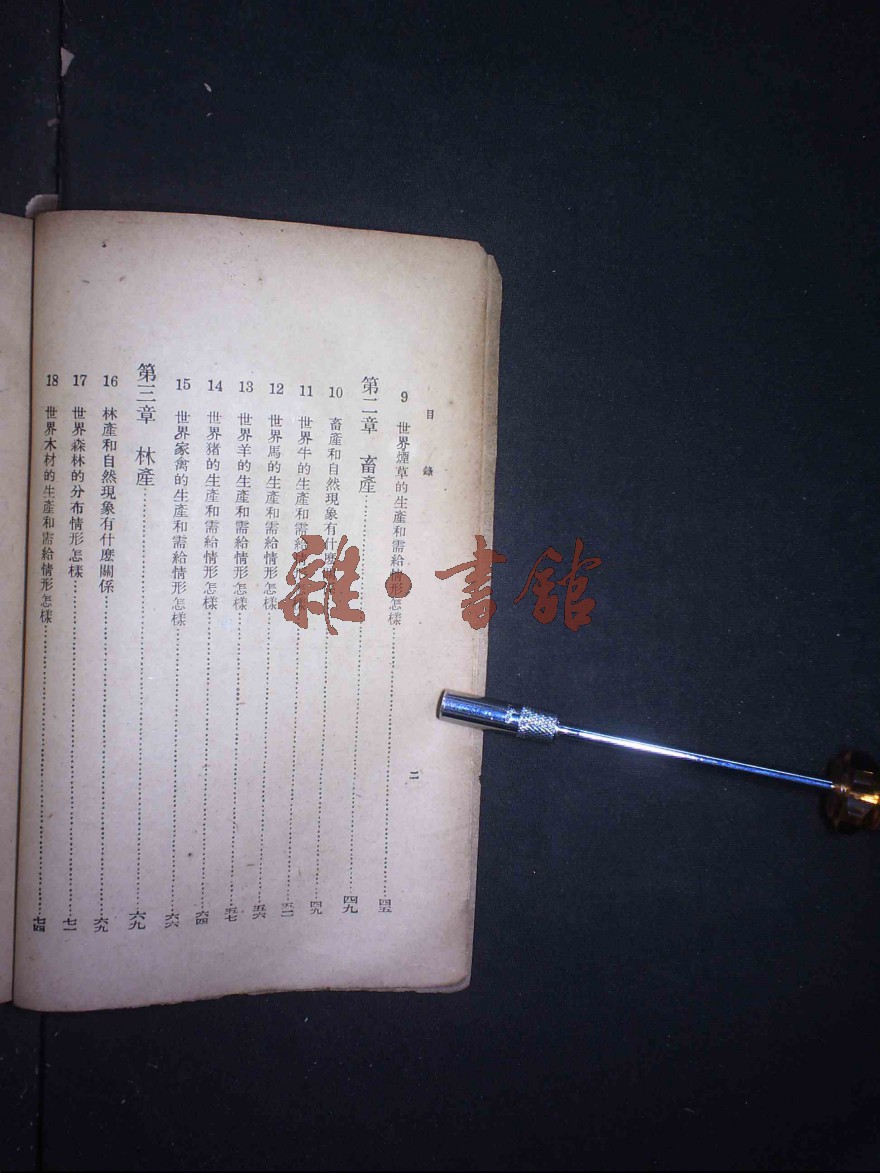 目錄
二
9 世界煙草的生產和需給情形怎樣……四五
第二章 畜產……四九
10 畜產和自然現象有什麼關係……四九
11 世界牛的生產和需給情形怎樣……五二
12 世界馬的生產和需給情形怎樣……五六
13 世界羊的生產和需給情形怎樣……五七
14 世界猪的生產和需給情形怎樣……六四
15 世界家禽的生產和需給情形怎樣……六六
第三章 林產……六九
16 林產和自然現象有什麼關係……六九
17 世界森林的分布情形怎樣……七一
18 世界木材的生產和需給情形怎樣……七四
雜·書館